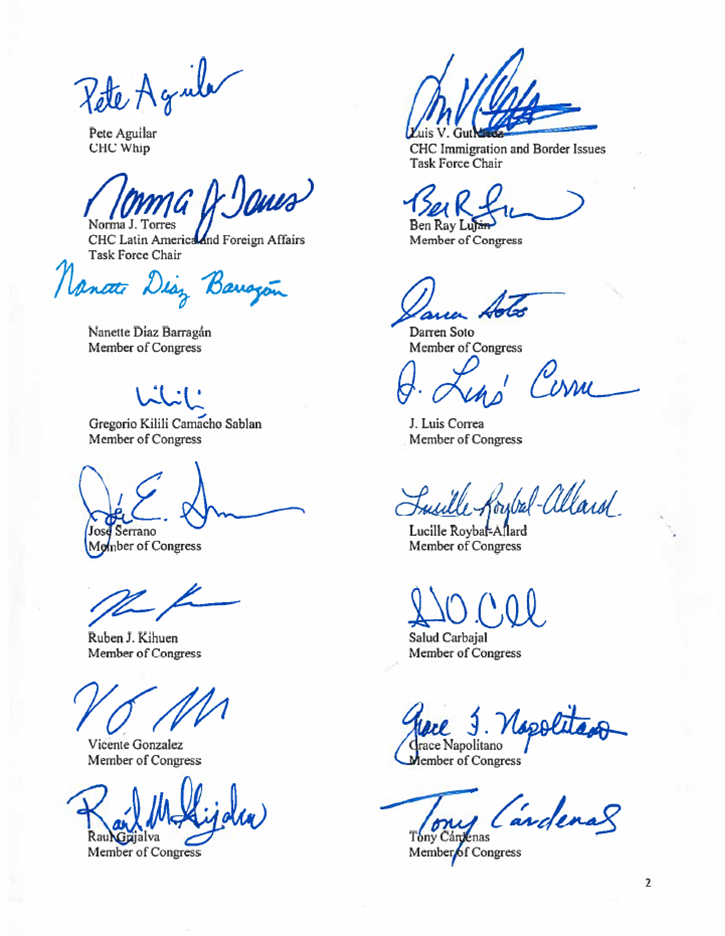 Pete Aguilar
Pete Aguilar
CHC Whip
Luis V. Gutiérrez
CHC Immigration and Border Issues
Task Force Chair
Norma J Torres
Norma J. Torres
CHC Latin America and Foreign Affairs
Task Force Chair
Ben R
Ben Ray Luján
Member of Congress
Nanette Diaz Barragán
Nanette Diaz Barragán
Member of Congress
Darren Soto
Darren Soto
Member of Congress
Kilili
Gregorio Kilili Camacho Sablan
Member of Congress
J. Luis Correa
J. Luis Correa
Member of Congress
José E. 
José Serrano
Member of Congress
Lucille Roybal-Allard
Lucille Roybal-Allard
Member of Congress
Ruben J. Kihuen
Member of Congress
Salud Carbajal
Member of Congress
Vicente Gonzalez
Member of Congress
Grace F. Napolitano
Grace Napolitano
Member of Congress
Raúl M Grijalva
Raul Grijalva
Member of Congress
Tony Cárdenas
Tony Cárdenas
Member of Congress
2